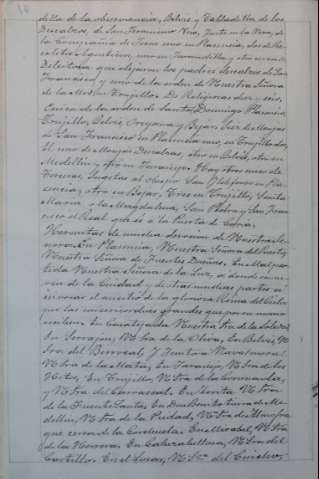 della de la observancia, Belvis y Tabladilla de los
Descalzos, de San Francisco. Uno, Junto en la Vera, de
la Compañia de Jesus uno en Plasencia, dos de
uno en Jarandilla y otro en
que dejaron los padres descalzos de San
Francisco, y uno de la orden de Nuestra Señora
de la Merced Trujillo. De Religiosas diez y seis,
Cuatro de la orden de Santo Domingo Plasencia,
Trujillo, Belvis, Oropesa y Bejar. Seis de Monjas
de San Francisco en Plasencia uno, en Trujillo dos,
El uno de Monjas Descalzas, otro en Belvis, otro en
Medellin, y otro en Jaraicejo. Hay otros uno de
sujetas al obispo San Ildefonso en Pla-
sencia, y otro en Bejar. Tres en Trujillo, Santa
Maria y la Magdalena, San Pedro y San Fran-
cisco el Real que es a la Puerta de Coria.
Hermitas de mucha devocion de Nuestra Se-
ñora. En Plasencia, Nuestra Señora del Puerto,
Nuestra Señora de Fuentes Dueñas. En Malpar-
tida Nuestra Señora de la Luz, a donde concur-
ren de la Ciudad y de otras muchas partes a
invocar el auxilio de la gloriosa Reina del Cielo
por las misericordias grandes que por su mano
reciben. En Nuestra Sra de la Soledad,
En Serrejon, Na Sra de la Oliva, En Belvis, Na
Sra del Berrocal y junto a Navalmoral
Na Sra de la Mata, En Jaraicejo, Na Sra de los
Hitos, En Trujillo, Na Sra de la Coronada,
y Na Sra del Carrascal. En Zorita Na Sra
de la Fuente Santa, En Don Benito tierra de Mede-
llin, Na Sra de la Piedad, Na Sra de
cerca de la Conduela. En Mirabel, Na Sra
de la Honra. En Cabezabellosa, Na Sra del
Castillo. En el Losar, Na Sra del